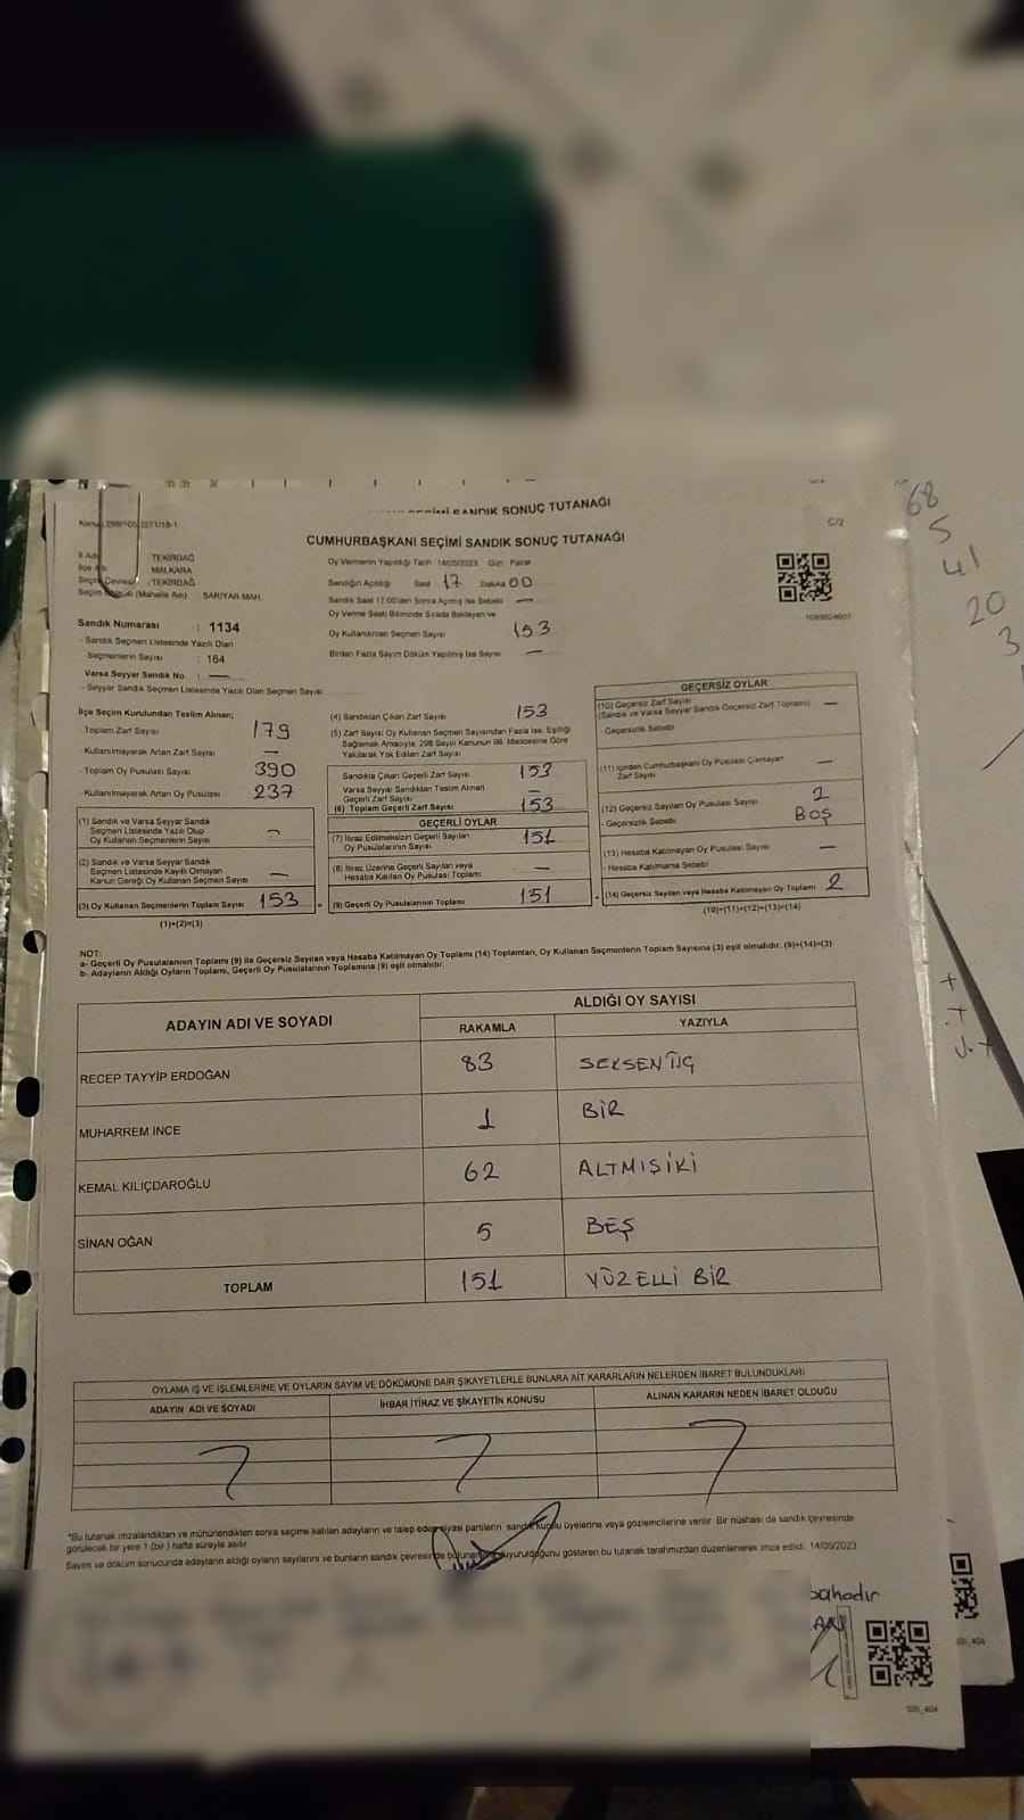 SANDIK SONUÇ TUTANAĞI
C/2
CUMHURBAŞKANI SEÇİMİ SANDIK SONUÇ TUTANAĞI
TEKİRDAĞ
MALKARA
TEKİRDAĞ
SARIYAR MAH.
Sandık Numarası : 1134
- Sandık Seçmen Listesinde Yazılı Olan
Seçmenlerin Sayısı : 164
Varsa Seyyar Sandık No : —
- Seyyar Sandık Seçmen Listesinde Yazılı Olan Seçmen Sayısı
Oy Vermenin Yapıldığı Tarih 14/05/2023 Gün Pazar
Sandığın Açıldığı Saat 17 Dakika 00
Sandık Saat 17:00'den Sonra Açılmış İse Sebebi —
Oy Verme Saati Bitiminde Sırada Bekleyen ve
Oy Kullandırılan Seçmen Sayısı 153
Birden Fazla Sayım Döküm Yapılmış İse Sayısı —
İlçe Seçim Kurulundan Teslim Alınan;
Toplam Zarf Sayısı 179
- Kullanılmayarak Artan Zarf Sayısı —
- Toplam Oy Pusulası Sayısı 390
- Kullanılmayarak Artan Oy Pusulası 237
(1) Sandık ve Varsa Seyyar Sandık
Seçmen Listesinde Yazılı Olup
Oy Kullanan Seçmenlerin Sayısı
(2) Sandık ve Varsa Seyyar Sandık
Seçmen Listesinde Kayıtlı Olmayan
Kanun Gereği Oy Kullanan Seçmen Sayısı —
(3) Oy Kullanan Seçmenlerin Toplam Sayısı 153
(1)+(2)=(3)
(4) Sandıktan Çıkan Zarf Sayısı 153
(5) Zarf Sayısı Oy Kullanan Seçmen Sayısından Fazla İse, Eşitliği
Sağlamak Amacıyla, 298 Sayılı Kanunun 98. Maddesine Göre
Yakılarak Yok Edilen Zarf Sayısı
Sandıkta Çıkan Geçerli Zarf Sayısı 153
Varsa Seyyar Sandıktan Teslim Alınan
Geçerli Zarf Sayısı —
(6) Toplam Geçerli Zarf Sayısı 153
GEÇERLİ OYLAR
(7) İtiraz Edilmeksizin Geçerli Sayılan
Oy Pusulalarının Sayısı 151
(8) İtiraz Üzerine Geçerli Sayılan veya
Hesaba Katılan Oy Pusulası Toplamı —
(9) Geçerli Oy Pusulalarının Toplamı 151
GEÇERSİZ OYLAR
(10) Geçersiz Zarf Sayısı
(Sandık ve Varsa Seyyar Sandık Geçersiz Zarf Toplamı) —
- Geçersizlik Sebebi
(11) İçinden Cumhurbaşkanı Oy Pusulası Çıkmayan
Zarf Sayısı —
(12) Geçersiz Sayılan Oy Pusulası Sayısı 2
- Geçersizlik Sebebi BOŞ
(13) Hesaba Katılmayan Oy Pusulası Sayısı —
- Hesaba Katılmama Sebebi
(14) Geçersiz Sayılan veya Hesaba Katılmayan Oy Toplamı 2
(10)+(11)+(12)+(13)=(14)
NOT:
a- Geçerli Oy Pusulalarının Toplamı (9) ile Geçersiz Sayılan veya Hesaba Katılmayan Oy Toplamı (14) Toplamları, Oy Kullanan Seçmenlerin Toplam Sayısına (3) eşit olmalıdır. (9)+(14)=(3)
b- Adayların Aldığı Oyların Toplamı, Geçerli Oy Pusulalarının Toplamına (9) eşit olmalıdır.
ADAYIN ADI VE SOYADI
ALDIĞI OY SAYISI
RAKAMLA YAZIYLA
RECEP TAYYİP ERDOĞAN 83 SEKSENÜÇ
MUHARREM İNCE 1 BİR
KEMAL KILIÇDAROĞLU 62 ALTMIŞİKİ
SİNAN OĞAN 5 BEŞ
TOPLAM 151 YÜZELLİ BİR
OYLAMA İŞ VE İŞLEMLERİNE VE OYLARIN SAYIM VE DÖKÜMÜNE DAİR ŞİKAYETLERLE BUNLARA AİT KARARLARIN NELERDEN İBARET BULUNDUKLARI
ADAYIN ADI VE SOYADI
İHBAR İTİRAZ VE ŞİKAYETİN KONUSU
ALINAN KARARIN NEDEN İBARET OLDUĞU
*Bu tutanak imzalandıktan ve mühürlendikten sonra seçime katılan adayların ve talep eden siyasi partilerin sandık kurulu üyelerine veya gözlemcilerine verilir. Bir nüshası da sandık çevresinde
görülecek bir yere 1 (bir) hafta süreyle asılır.
Sayım ve döküm sonucunda adayların aldığı oyların sayılarını ve bunların sandık çevresinde duyurulduğunu gösteren bu tutanak tarafımızdan düzenlenerek imza edildi. 14/05/2023
bahadır
68
5
41
20
3